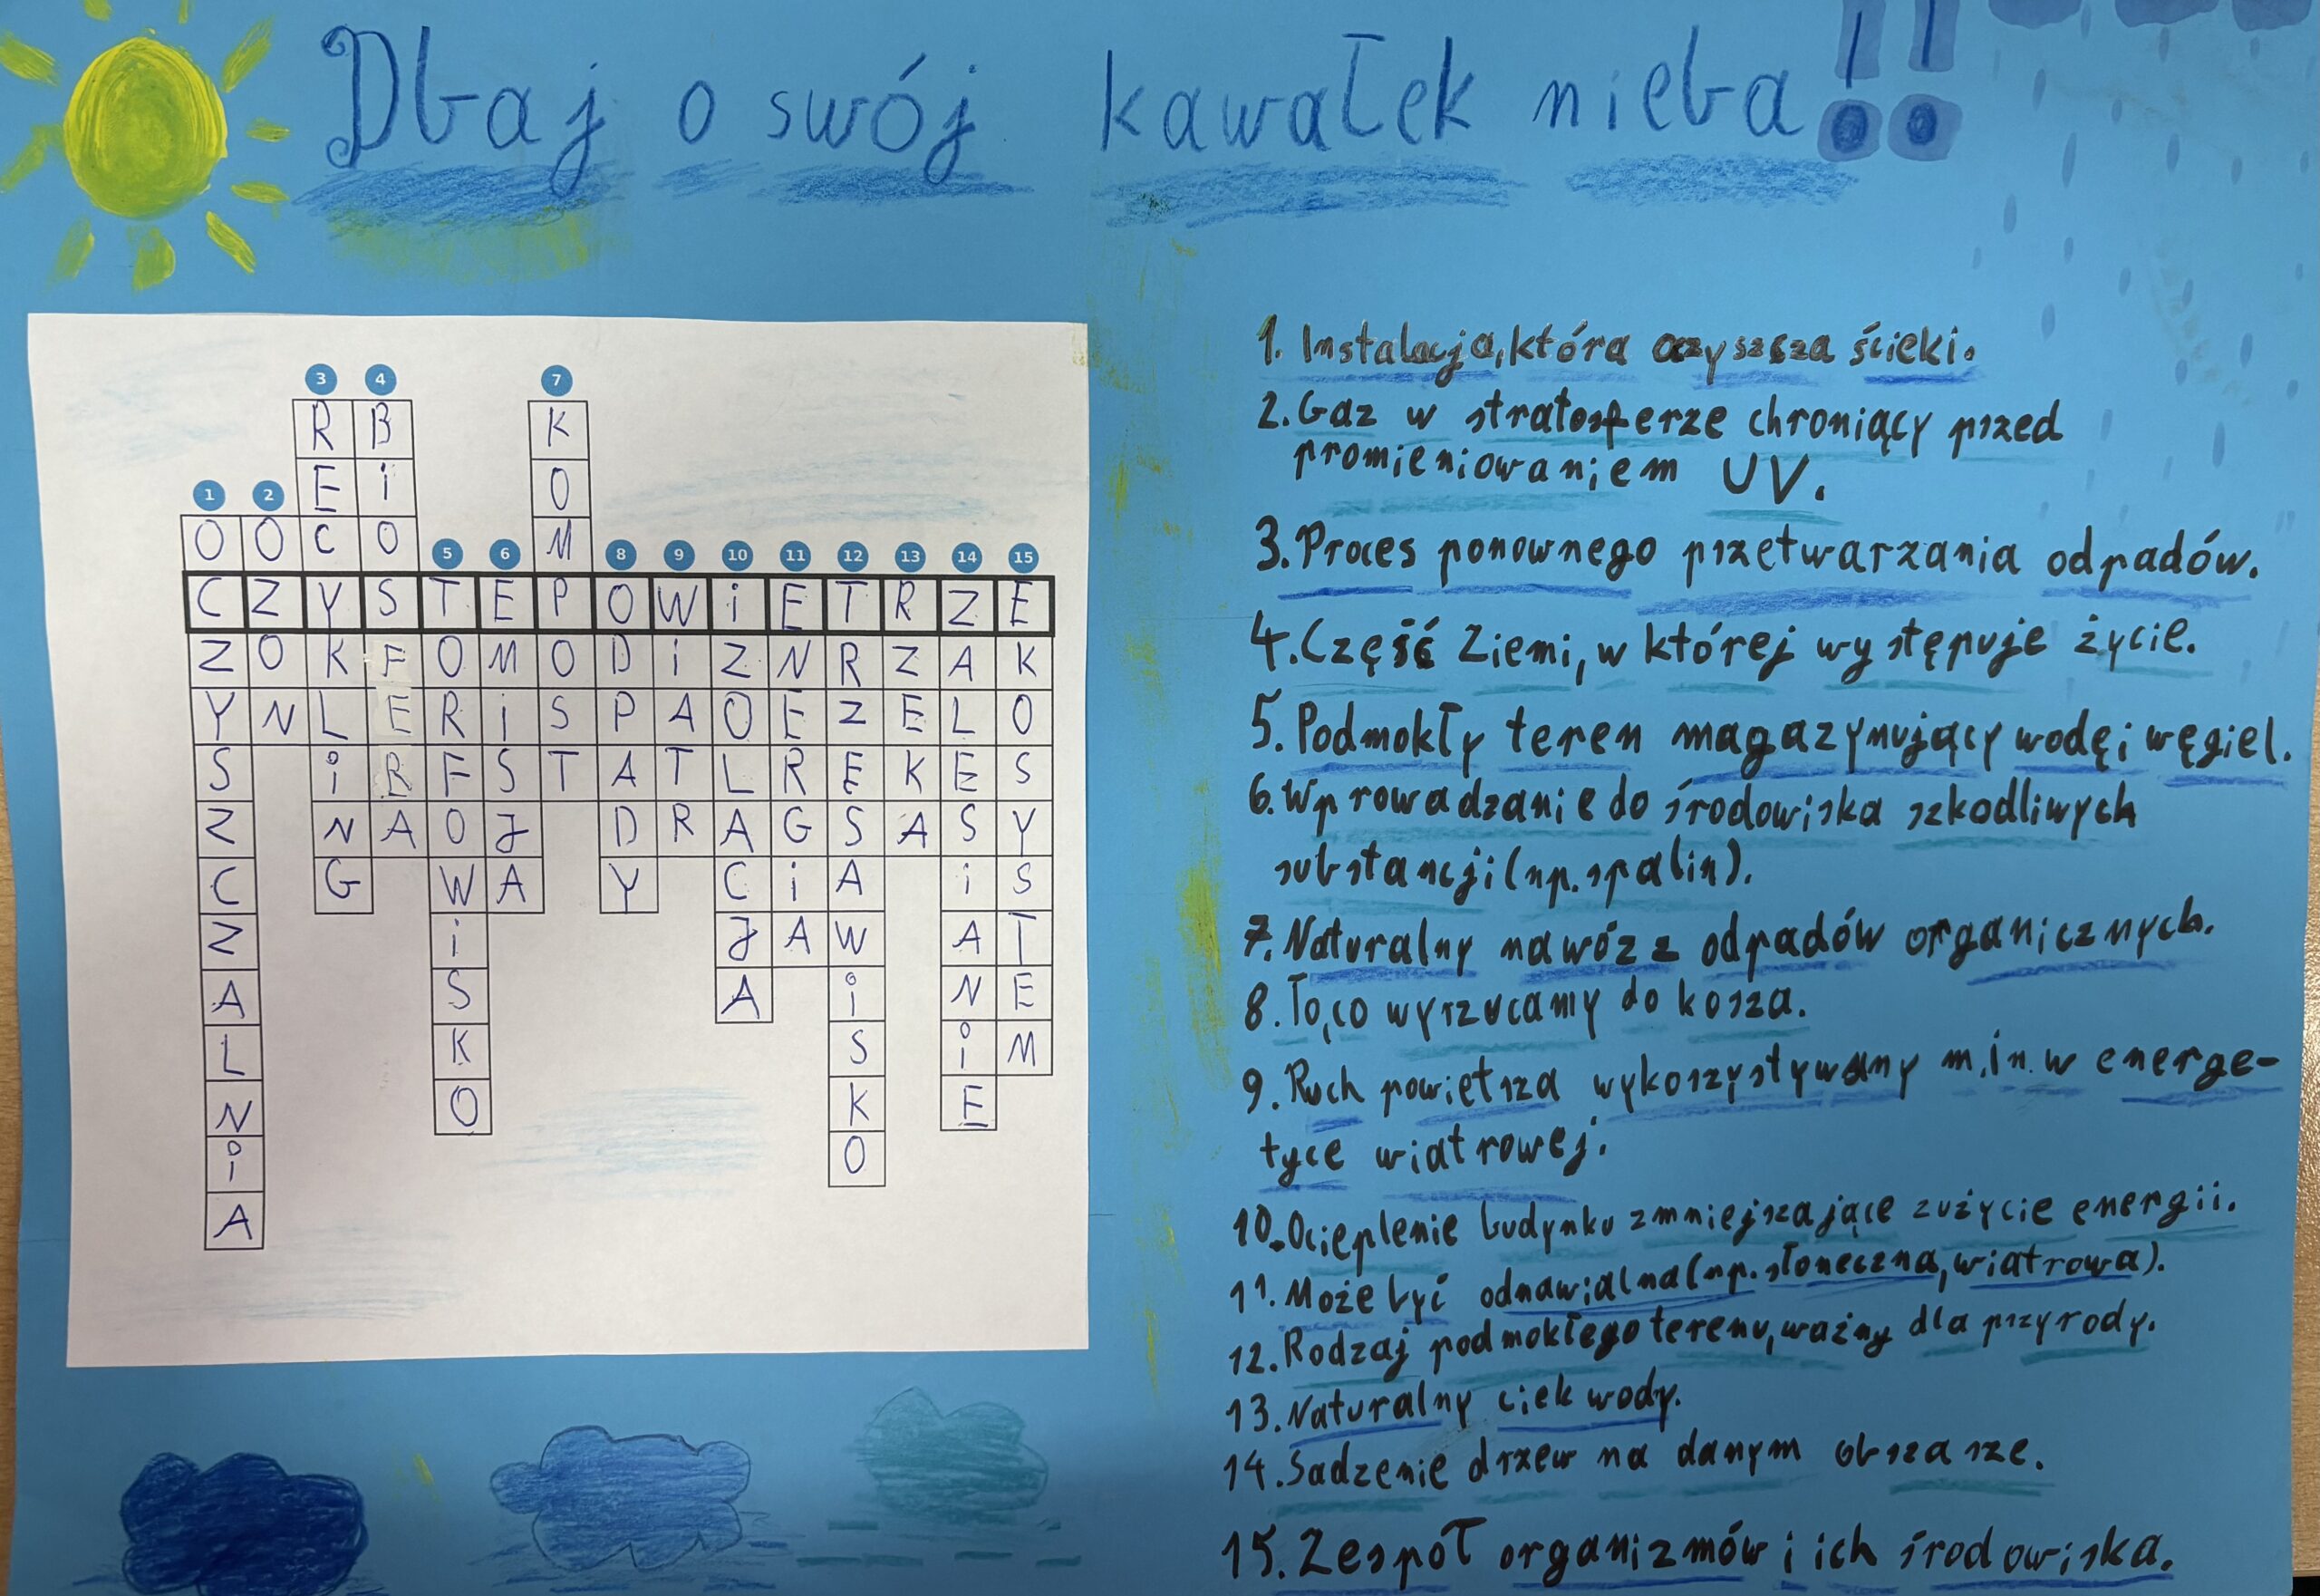 Dbaj o swój kawałek nieba!!
3 4 7
R B K
E i O
1 2
O O C O M
5 6 8 9 10 11 12 13 14 15
C Z Y S T E P O W i E T R Z E
Z O K F O M O D i Z N R Z A K
Y N L E R i S P A O E Z E L O
S i R F S T A T L R E K E S
Z N A O J D R A G S A S Y
C G W A Y C i A i S
Z i J A W A T
A S A i N E
L K S i M
N O K E
i O
A
1. Instalacja, która oczyszcza ścieki.
2. Gaz w stratosferze chroniący przed
promieniowaniem UV.
3. Proces ponownego przetwarzania odpadów.
4. Część Ziemi, w której występuje życie.
5. Podmokły teren magazynujący wodę i węgiel.
6. Wprowadzanie do środowiska szkodliwych
substancji (np. spalin).
7. Naturalny nawóz z odpadów organicznych.
8. To, co wyrzucamy do kosza.
9. Ruch powietrza wykorzystywany m.in. w energe-
tyce wiatrowej.
10. Ocieplenie budynku zmniejszające zużycie energii.
11. Może być odnawialna (np. słoneczna, wiatrowa).
12. Rodzaj podmokłego terenu, ważny dla przyrody.
13. Naturalny ciek wody.
14. Sadzenie drzew na danym obszarze.
15. Zespół organizmów i ich środowiska.